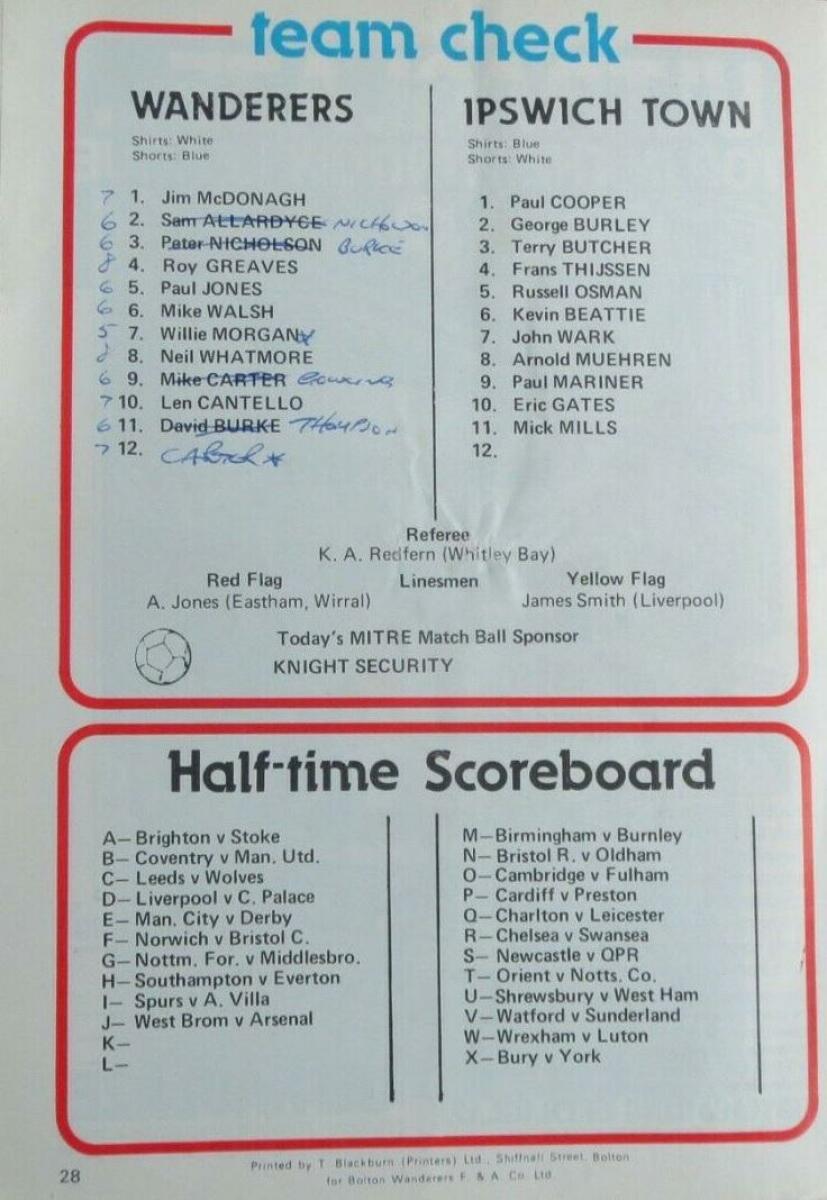 team check
WANDERERS
Shirts: White
Shorts: Blue
7 1. Jim McDONAGH
6 2. Sam ALLARDYCE
6 3. Peter NICHOLSON BURKE
8 4. Roy GREAVES
6 5. Paul JONES
6 6. Mike WALSH
5 7. Willie MORGAN
8 8. Neil WHATMORE
6 9. Mike CARTER
7 10. Len CANTELLO
6 11. David BURKE THOMPSON
7 12. CARTER *
IPSWICH TOWN
Shirts: Blue
Shorts: White
1. Paul COOPER
2. George BURLEY
3. Terry BUTCHER
4. Frans THIJSSEN
5. Russell OSMAN
6. Kevin BEATTIE
7. John WARK
8. Arnold MUEHREN
9. Paul MARINER
10. Eric GATES
11. Mick MILLS
12.
Referee
K. A. Redfern (Whitley Bay)
Red Flag Linesmen Yellow Flag
A. Jones (Eastham, Wirral) James Smith (Liverpool)
Today's MITRE Match Ball Sponsor
KNIGHT SECURITY
Half-time Scoreboard
A— Brighton v Stoke
B— Coventry v Man. Utd.
C— Leeds v Wolves
D— Liverpool v C. Palace
E— Man. City v Derby
F— Norwich v Bristol C.
G— Nottm. For. v Middlesbro.
H— Southampton v Everton
I— Spurs v A. Villa
J— West Brom v Arsenal
K—
L—
M—Birmingham v Burnley
N— Bristol R. v Oldham
O— Cambridge v Fulham
P— Cardiff v Preston
Q—Charlton v Leicester
R—Chelsea v Swansea
S— Newcastle v QPR
T—Orient v Notts. Co.
U—Shrewsbury v West Ham
V—Watford v Sunderland
W—Wrexham v Luton
X—Bury v York
28
Printed by T. Blackburn (Printers) Ltd., Shiffnall Street, Bolton
for Bolton Wanderers F. & A. Co. Ltd.